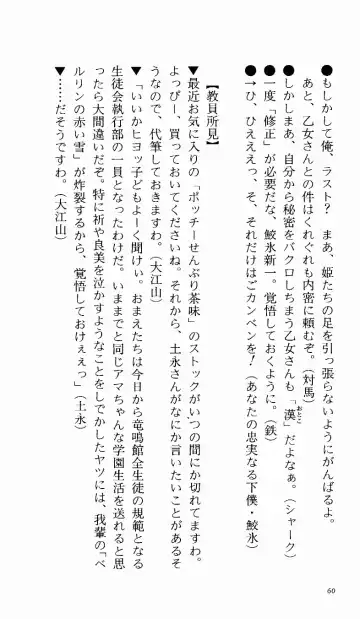 ●もしかして俺、ラスト？　まあ、姫たちの足を引っ張らないようにがんばるよ。
あと、乙女さんとの件はくれぐれも内密に頼むぞ。（対馬）
●しかしまあ、自分から秘密をバクロしちまう乙女さんも「漢」だよなぁ。（シャーク）
おとこ
●一度「修正」が必要だな、鮫氷新一。覚悟しておくように。（鉄）
→ひ、ひええええっ、そ、それだけはごカンベンを！（あなたの忠実なる下僕・鮫氷）
【教員所見】
▼最近お気に入りの「ポッチーせんぶり茶味」のストックがいつの間にか切れてますわ。
よっぴー、買っておいてくださいね。それから、土永さんがなにか言いたいことがあるそ
うなので、代筆しておきますわ。（大江山）
▼「いいかヒヨッ子どもよーく聞けぃ。おまえたちは今日から竜鳴館全生徒の規範となる
生徒会執行部の一員となったわけだ。いままでと同じアマちゃんな学園生活を送れると思
ったら大間違いだぞ。特に祈や良美を泣かすようなことをしでかしたヤツには、我輩の「ベ
ルリンの赤い雪」が炸裂するから、覚悟しておけぇぇっ」（土永）
▼……だそうですわ。（大江山）
60